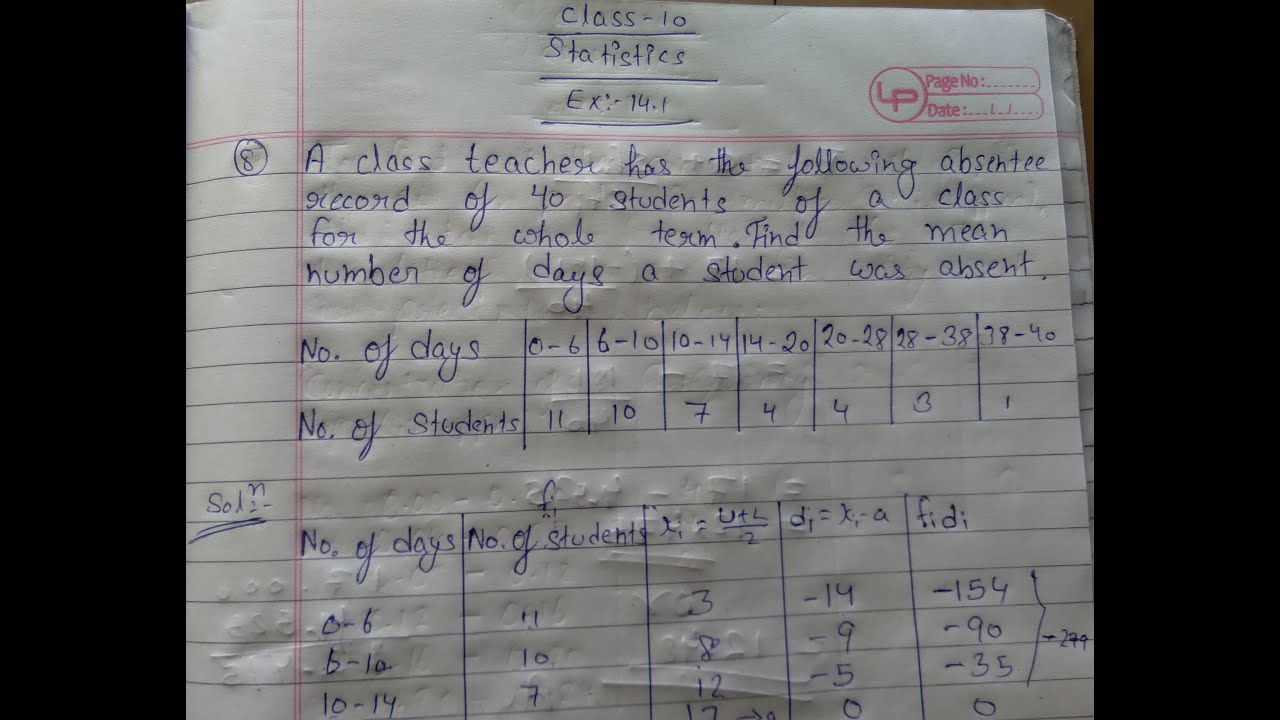 Class-10
Statistics
Ex:- 14.1
LP
Page No:.......
Date:..../..../....
8 A class teacher has the following absentee
record of 40 students of a class
for the whole term. Find the mean
number of days a student was absent.
No. of days 0-6 6-10 10-14 14-20 20-28 28-38 38-40
No. of Students 11 10 7 4 4 3 1
Solⁿ:-
No. of days No. of students fi xi = U+L/2 di = xi-a fidi
0-6 11 3 -14 -154
6-10 10 8 -9 -90
10-14 7 12 -5 -35
-279
17 → a 0 0